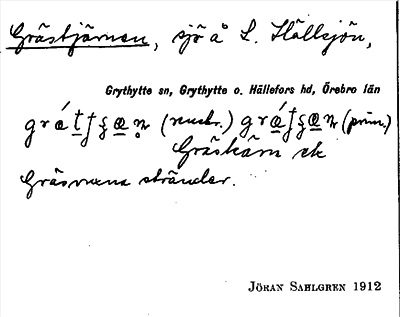 Grästjärnen, sjö å L. Hällsjön,
Grythytte sn, Grythytte o. Hällefors hd, Örebro län
(neutr.) (prim.)
Gräskärn etc
Gräsvuxna stränder.
JÖRAN SAHLGREN 1912